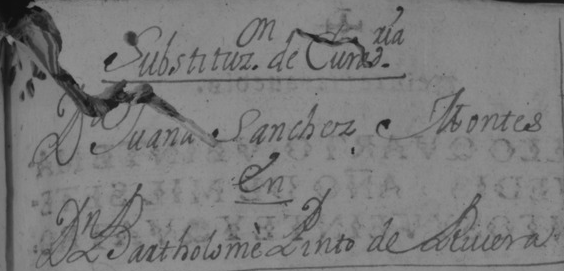 Substituz.on de Cura.ria
Da Juana Sanchez Montes
En
Dn Bartholomè Pinto de Rivera